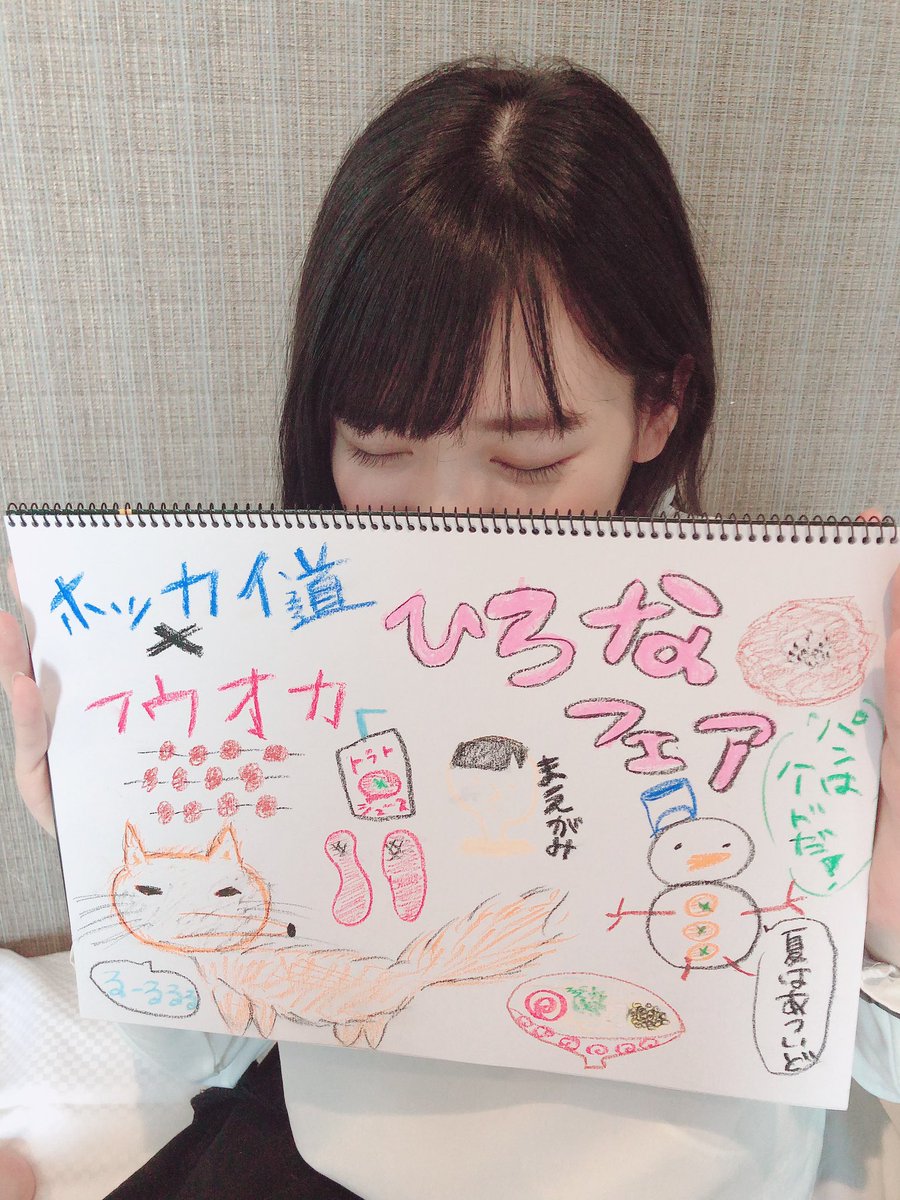 ホッカイ道
×
フウオカ
ひろな
フェア
パンは
ケドだ!
トマト
ジュース
まえがみ
る〜るるる
夏はあついど